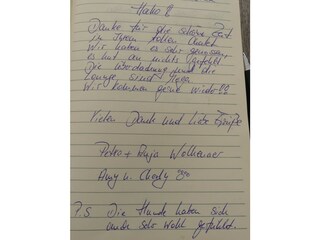 Hallo !!
Danke für die schöne Zeit
in Ihrem tollen
Wir haben es sehr genossen,
es hat an nichts gefehlt.
Die und die
Lounge, sind
Wir kommen gerne wieder !!
Vielen Dank und liebe Grüße
Petra +
Amy u.
P.S. Die Hunde haben sich
auch sehr wohl gefühlt...